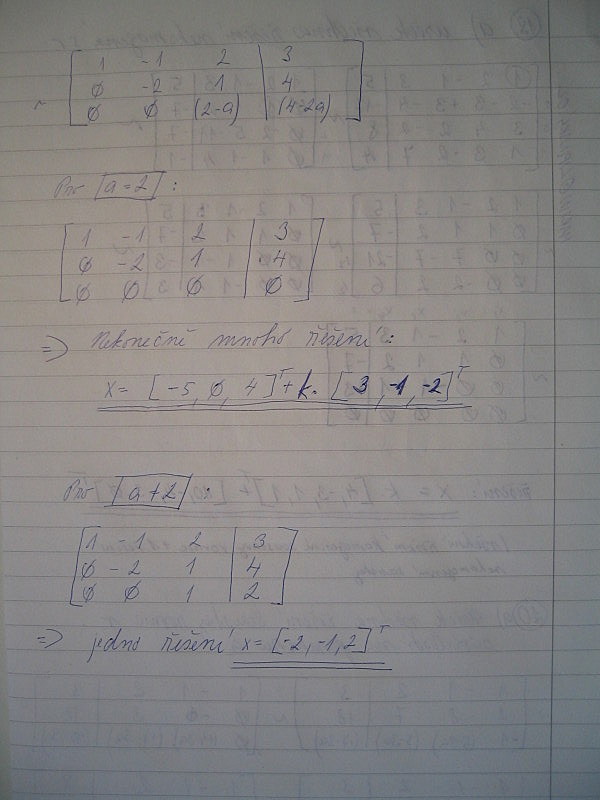 1 -1 2 | 3
∅ -2 1 | 4
~ ∅ ∅ (2-a) | (4-2a)
Pro a=2 :
1 -1 2 | 3
∅ -2 1 | 4
∅ ∅ ∅ | ∅
=> Nekonečně mnoho řešení :
x = [-5, ∅, 4]ᵀ + k. [3, -1, -2]ᵀ
Pro a≠2 :
1 -1 2 | 3
∅ -2 1 | 4
∅ ∅ 1 | 2
=> jedno řešení x = [-2, -1, 2]ᵀ